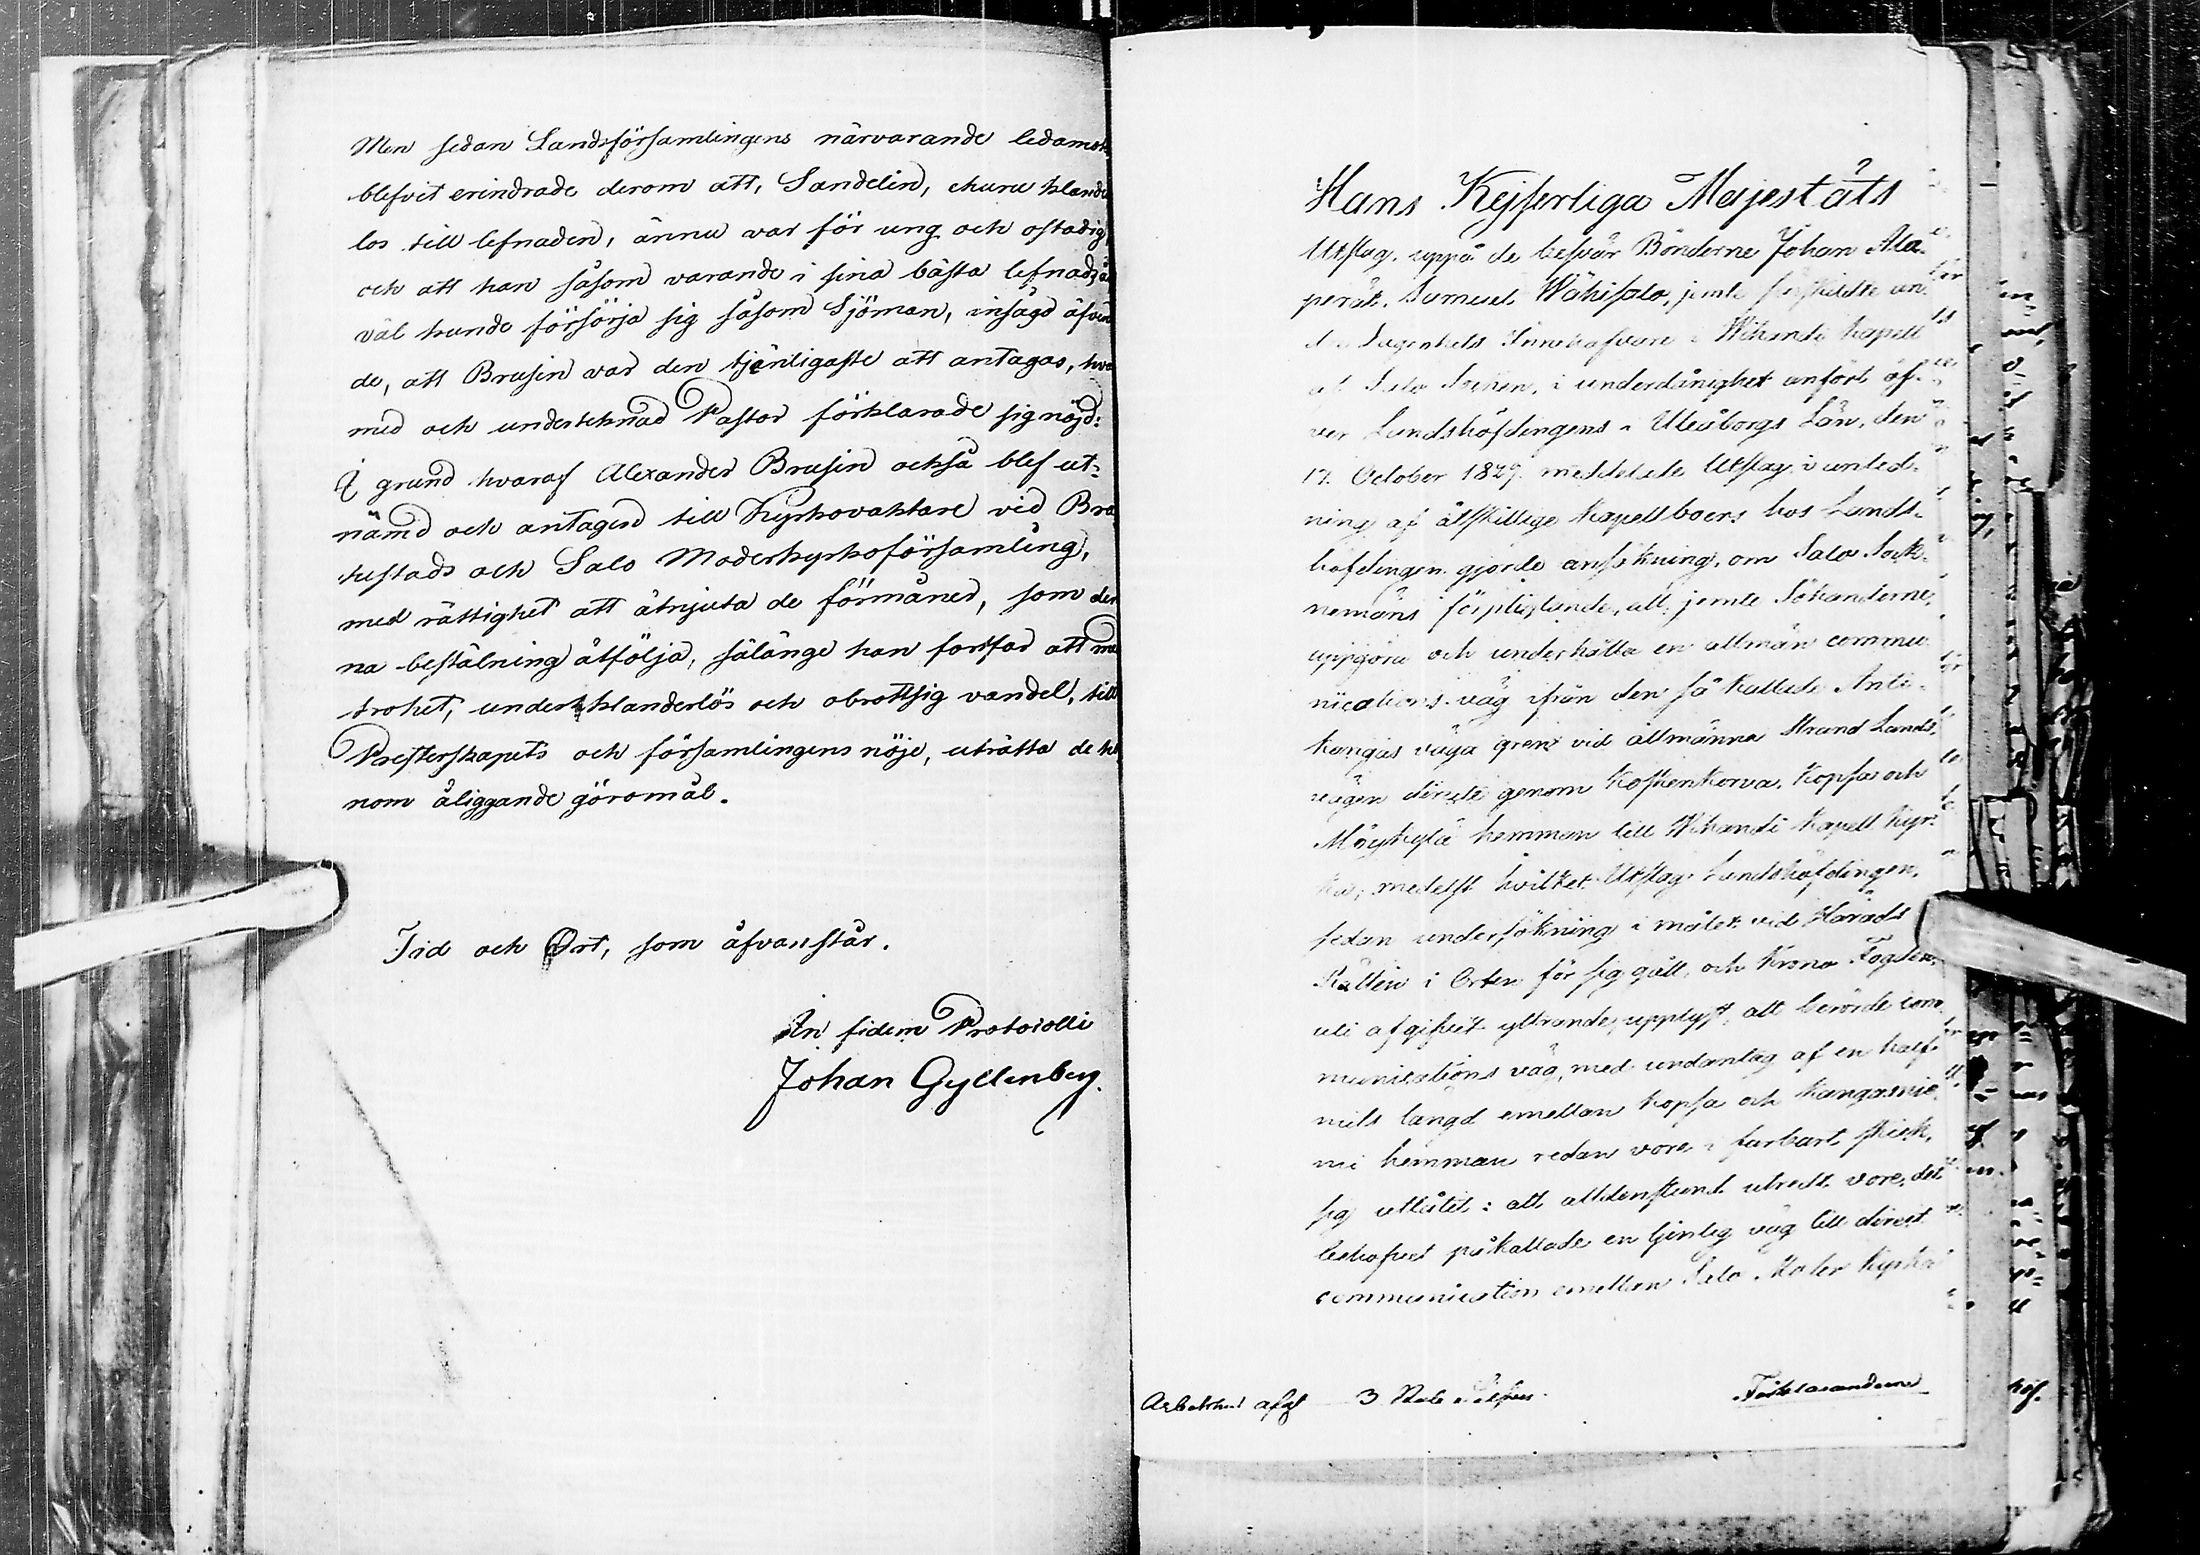 Men sedan Landsförsamlingens närvarande ledamöt
blefvit erindrade derom att, Sandelin, ehuru klander
lös till lefnaden, ännu var för ung och ostadig,
och att han såsom varande i sina bästa lefnadsår
väl kunde försörja sig såsom Sjöman, insågo äfven
de, att Brusin var den tjenligaste att antagas, hvar
med och undertecknad Pastor förklarade sig nöjd:
I grund hvaraf Alexander Brusin också blef ut-
nämd och antagen till Kyrkovaktare vid Bra
hestads och Salo Moderkyrkoförsamling,
med rättighet att åtnjuta de förmåner, som den
na beställning åtfölja, sålänge han fortfar att med
trohet, under klanderlös och obrottslig vandel, till
Presterskapets och församlingens nöje, uträtta de ho
nom åliggande göromål.
Tid och Ort, som åfvanstår.
In fidem Protocolli
Johan Gyllenberg.
Hans Kejserliga Majestäts
Utslag, uppå de besvär Bönderne Johan Ala-
perät, Samuel Wähäsalo, jemte särskildte an-
dre Lägenhets Innehafvare i Wihandi Kapell
af Salo Socken, i underdånighet anfört öf-
ver Landshöfdingens i Uleåborgs Län, den
17. October 1829 meddelade Utslag, i anled-
ning af åtskillige Kapellboers hos Lands-
höfdingen gjorde ansökning, om Salo Sock-
nemäns förpligtande, att jemte Sökanderne,
uppgöra och underhålla en allmän commu-
nications-väg ifrån den så kallade Anti-
kangas väga gren vid allmänna Strand Lands-
vägen direkte genom Koskenkorva, Kopsa och
Möykylä hemman till Wihandi Kapell Kyr-
ka; medelst hvilket Utslag Landshöfdingen,
sedan undersökning i målet vid Härads
Rätten i Orten för sig gått, och Krono Fogden,
uti afgifvit yttrande, upplyst, att berörde com-
munications väg, med undantag af en half
mils längd emellan Kopsa och Kangasnie-
mi hemman redan vore i farbart skick,
sig utlåtit: att alldenstund utredt vore, det
behofvet påkallade en tjenlig väg till direct
communication emellan Salo Moder Kyrka
3 Rub. Silfver
Förklaranderne